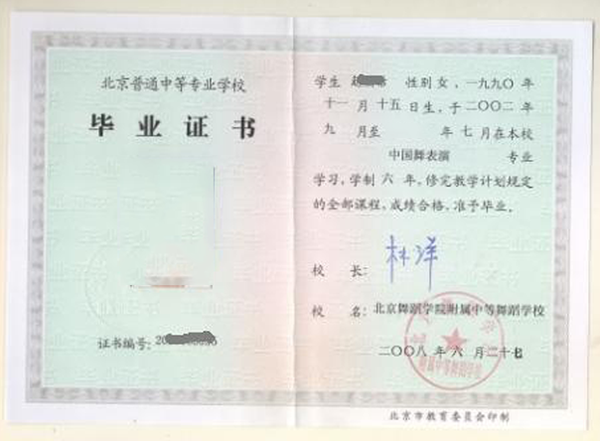 北京普通中等专业学校
毕业证书
证书编号:20
学生 性别 女,一九九〇年
十一月十五日生,于二〇〇二年
九月至 年七月在本校
中国舞表演 专业
学习,学制六年,修完教学计划规定
的全部课程,成绩合格,准予毕业。
林洋
校长:
校名:北京舞蹈学院附属中等舞蹈学校
二〇〇八年六月二十七
北京市教育委员会印制